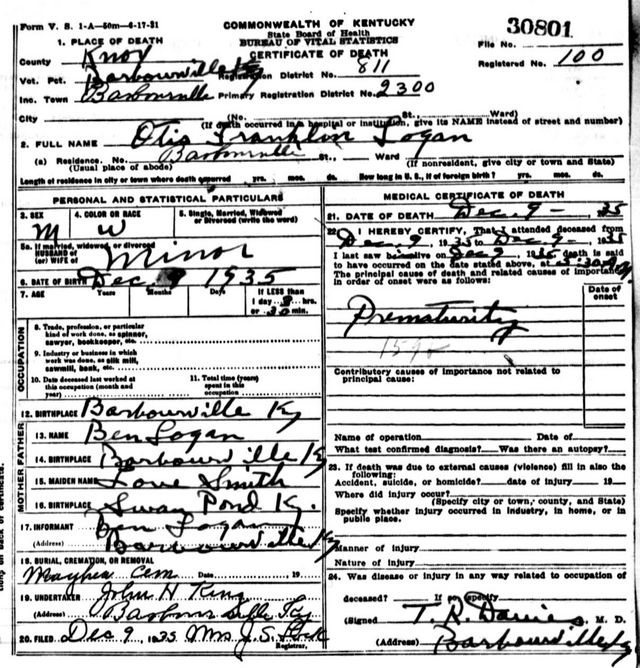 Form V. S. 1-A—50m—6-17-31
COMMONWEALTH OF KENTUCKY
State Board of Health
BUREAU OF VITAL STATISTICS
CERTIFICATE OF DEATH
30801
File No.
Registered No. 100
1. PLACE OF DEATH
County Knox
Vot. Pct. Barbourville Ky Registration District No. 811
Inc. Town Barbourville Primary Registration District No. 2300
City (No. St., Ward)
(If death occurred in a hospital or institution, give its NAME instead of street and number)
2. FULL NAME Otis Franklin Logan
(a) Residence. No. Barbourville St., Ward
(Usual place of abode) (If nonresident, give city or town and State)
Length of residence in city or town where death occurred yrs. mos. ds. How long in U. S., if of foreign birth? yrs. mos. ds.
PERSONAL AND STATISTICAL PARTICULARS
3. SEX 4. COLOR OR RACE 5. Single, Married, Widowed or Divorced (write the word)
M W
5a. If married, widowed, or divorced
HUSBAND of
(or) WIFE of Minor
6. DATE OF BIRTH Dec. 9 1935
7. AGE Years Months Days If LESS than
1 day 8 hrs.
or 30 min.
OCCUPATION
8. Trade, profession, or particular
kind of work done, as spinner,
sawyer, bookkeeper, etc.
9. Industry or business in which
work was done, as silk mill,
sawmill, bank, etc.
10. Date deceased last worked at
this occupation (month and
year)
11. Total time (years)
spent in this
occupation
12. BIRTHPLACE Barbourville Ky
FATHER
13. NAME Ben Logan
14. BIRTHPLACE Barbourville Ky
MOTHER
15. MAIDEN NAME Love Smith
16. BIRTHPLACE Swan Pond Ky.
17. INFORMANT Ben Logan
(Address) Barbourville Ky
18. BURIAL, CREMATION, OR REMOVAL
Cem Date 19
19. UNDERTAKER John H King
(Address) Barbourville Ky
20. FILED Dec 9, 1935 Mrs J. S.
Registrar.
MEDICAL CERTIFICATE OF DEATH
21. DATE OF DEATH Dec. 9 - 35
22. I HEREBY CERTIFY, That I attended deceased from
Dec. 9, 1935 to Dec 9 - 1935
I last saw h alive on Dec 9 1935 death is said
to have occurred on the date stated above, at 5:30
The principal cause of death and related causes of importance
in order of onset were as follows:
Date of
onset
Prematurity
159
Contributory causes of importance not related to
principal cause:
Name of operation Date of
What test confirmed diagnosis? Was there an autopsy?
23. If death was due to external causes (violence) fill in also the
following:
Accident, suicide, or homicide? date of injury 19
Where did injury occur?
(Specify city or town, county, and State)
Specify whether injury occurred in industry, in home, or in
public place.
Manner of injury
Nature of injury
24. Was disease or injury in any way related to occupation of
deceased? If so, specify
(Signed T. R. Davies, M. D.
Barbourville Ky